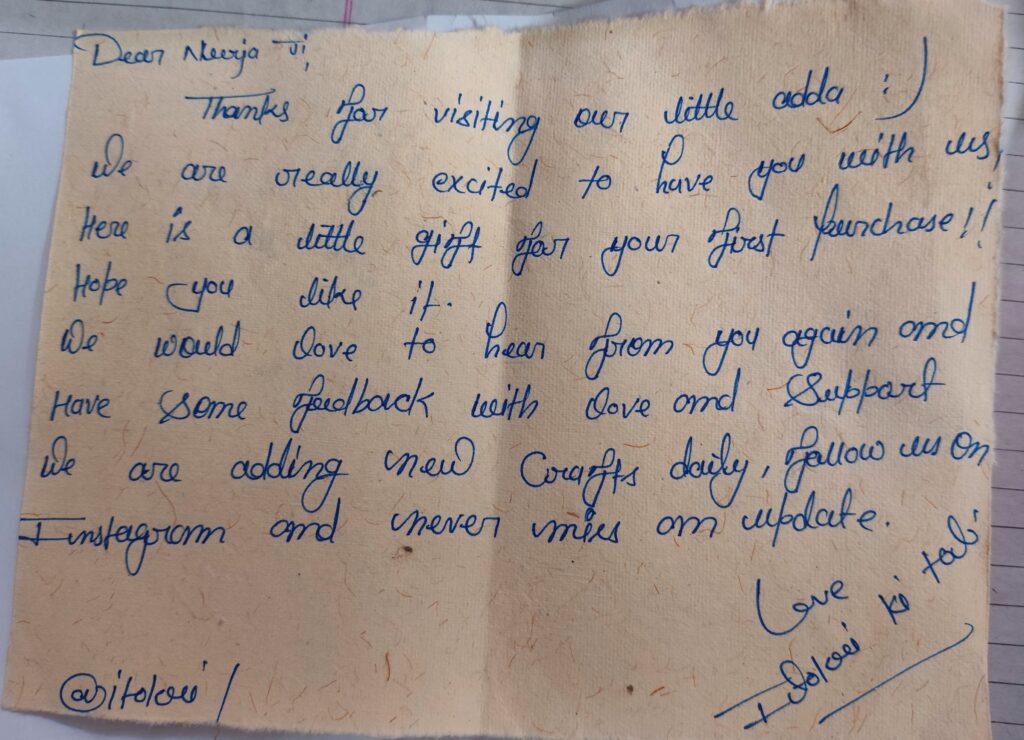 Dear Neerja Ji,
Thanks for visiting our little adda :)
We are really excited to have you with us,
Here is a little gift for your first purchase!!
Hope you like it.
We would love to hear from you again and
Have some feedback with love and Support
We are adding new Crafts daily, follow us on
Instagram and never miss an update.
Love
Itokri ki toli
@itokri /